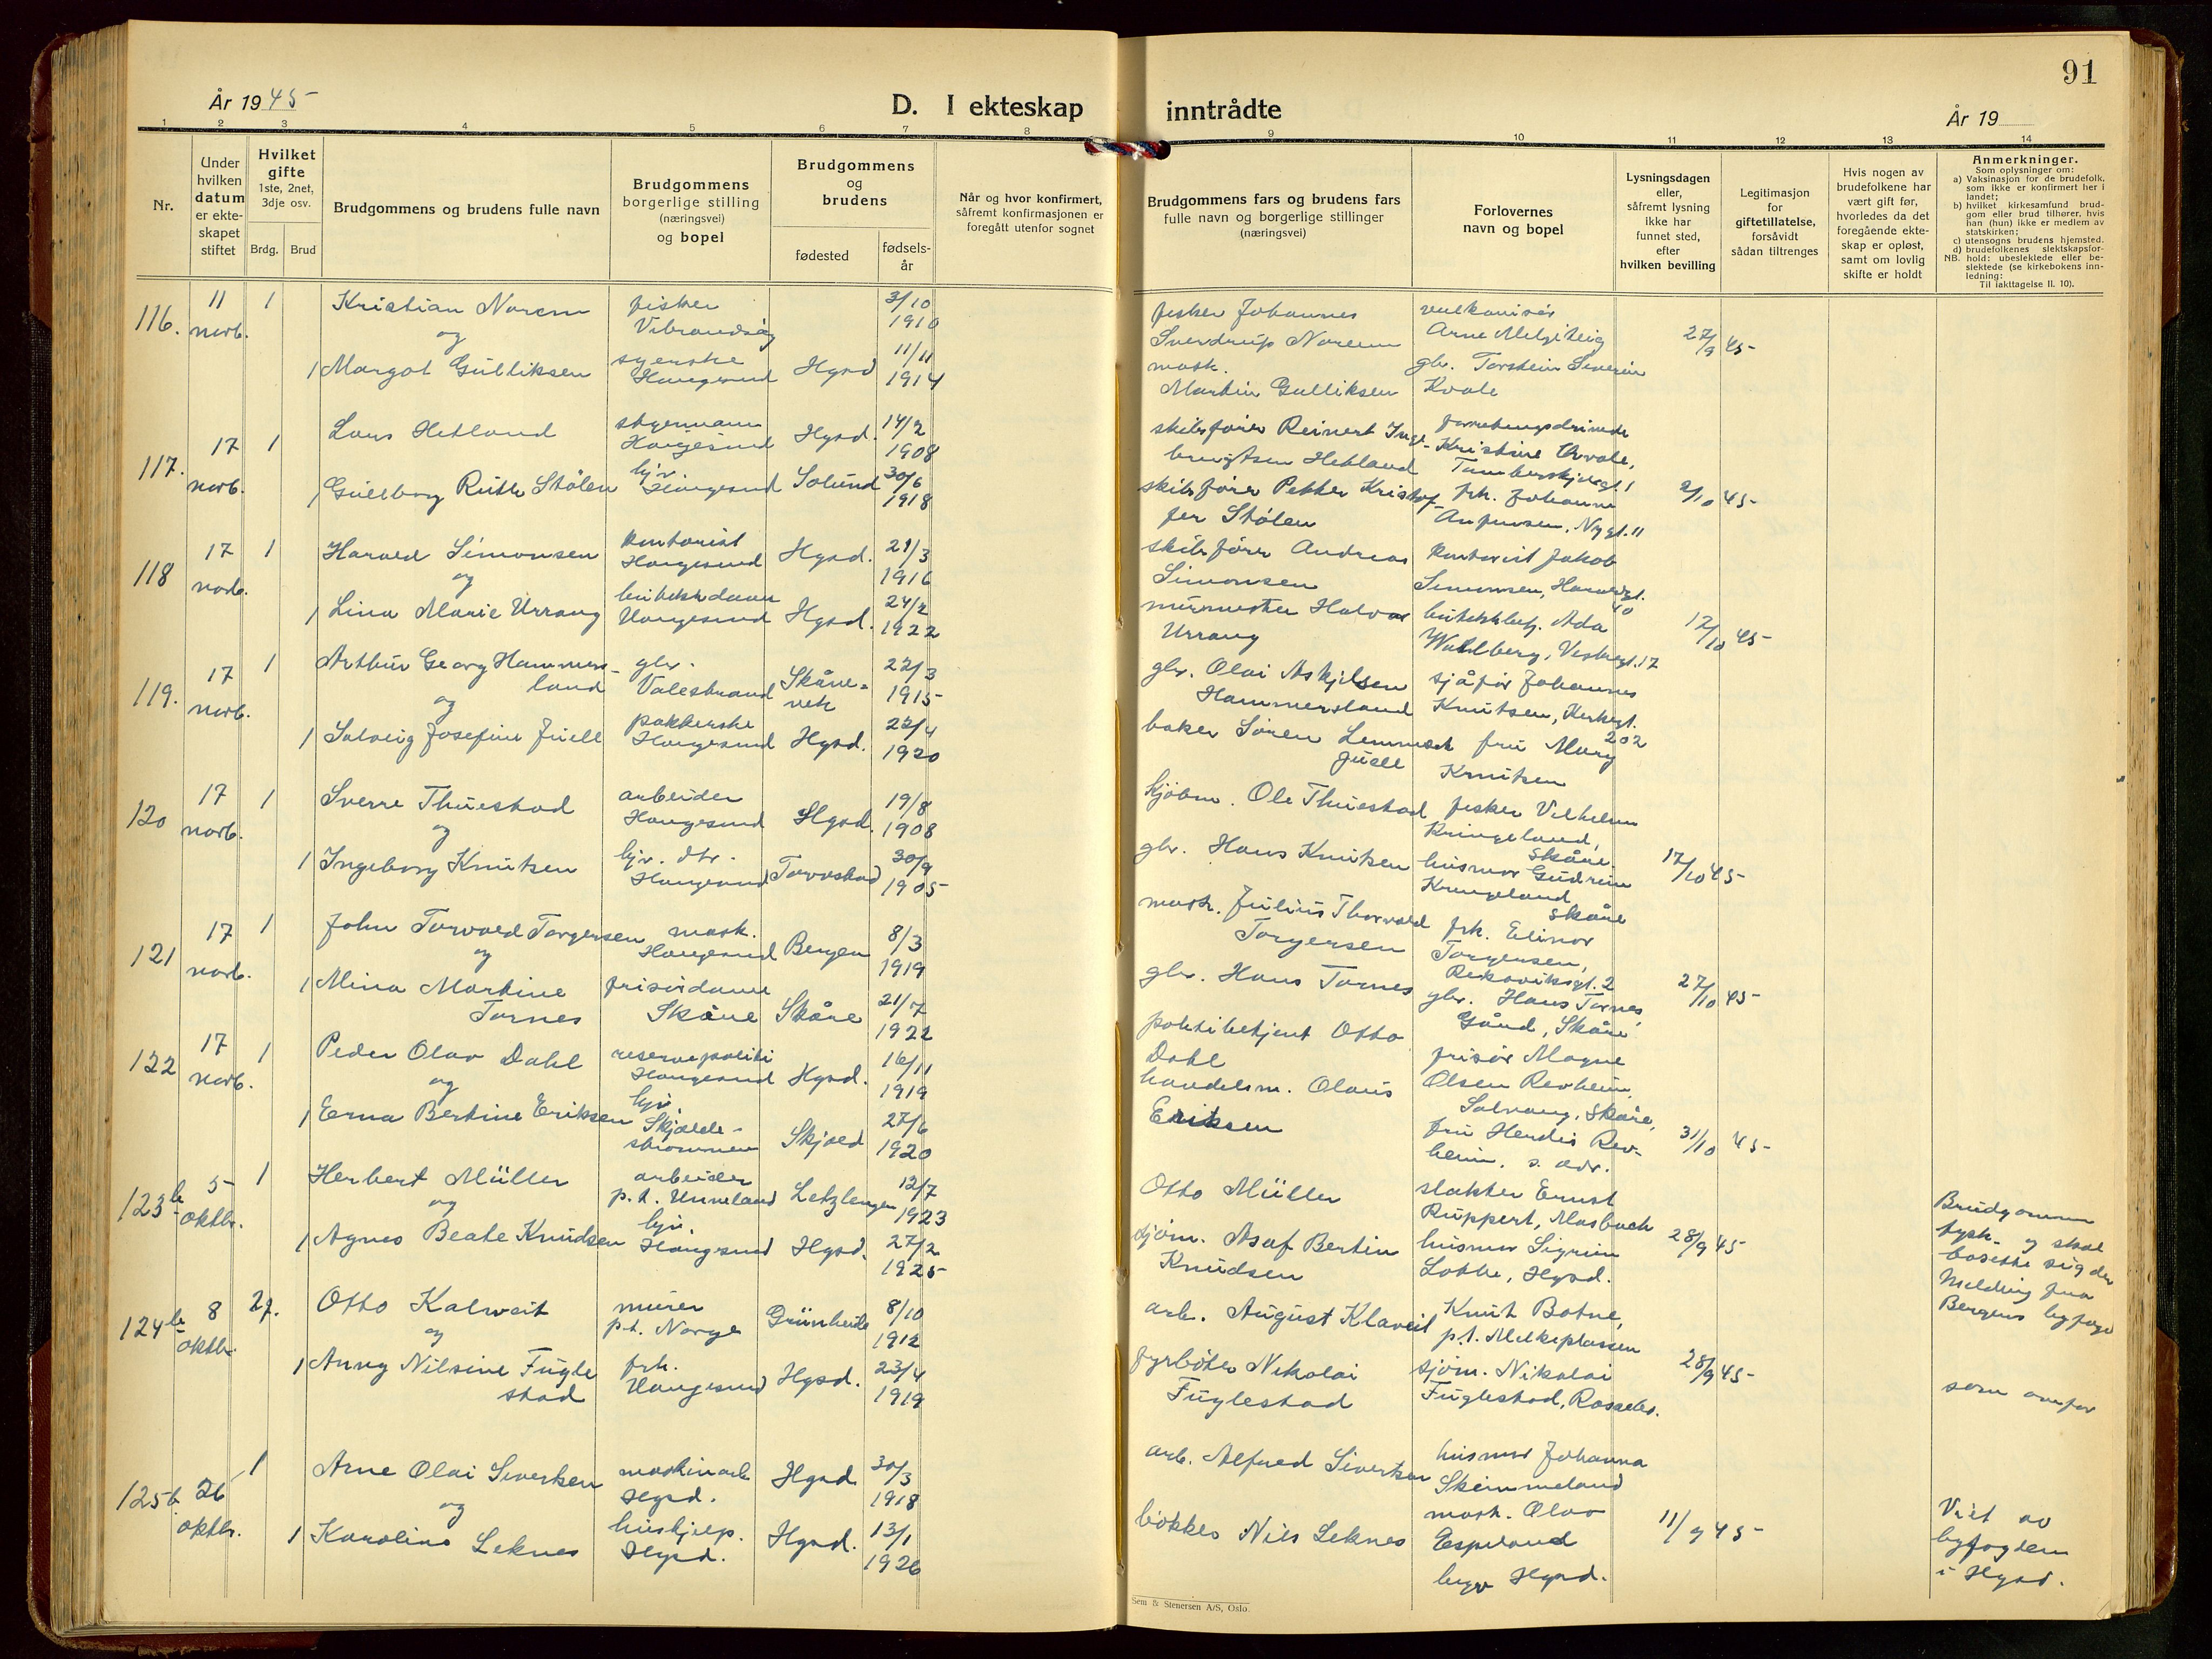 91
År 1945
D. I ekteskap inntrådte
År 19
1 2 3 4 5 6 7 8 9 10 11 12 13 14
Nr.
Under
hvilken
datum
er ekte-
skapet
stiftet
Hvilket
gifte
1ste, 2net,
3dje osv.
Brdg. Brud
Brudgommens og brudens fulle navn
Brudgommens
borgerlige stilling
(næringsvei)
og bopel
Brudgommens
og
brudens
fødested
fødsels-
år
Når og hvor konfirmert,
såfremt konfirmasjonen er
foregått utenfor sognet
Brudgommens fars og brudens fars
fulle navn og borgerlige stillinger
(næringsvei)
Forlovernes
navn og bopel
Lysningsdagen
eller,
såfremt lysning
ikke har
funnet sted,
efter
hvilken bevilling
Legitimasjon
for
giftetillatelse,
forsåvidt
sådan tiltrenges
Hvis nogen av
brudefolkene har
vært gift før,
hvorledes da det
foregående ekte-
skap er opløst,
samt om lovlig
skifte er holdt
Anmerkninger.
Som oplysninger om:
a) Vaksinasjon for de brudefolk,
som ikke er konfirmert her i
landet;
b) hvilket kirkesamfund brud-
gom eller brud tilhører, hvis
han (hun) ikke er medlem av
statskirken;
c) utensogns brudens hjemsted.
d) brudefolkenes slektskapsfor-
NB. hold: ubeslektede eller be-
slektede (se kirkebokens inn-
ledning:
Til iakttagelse II. 10).
116. 11 novb. 1 Kristian Norem fisker 3/10 1910
og
1 Margot Gulliksen syerske Haugesund Hgsd 11/11 1914
fisker Johannes
Sverdrup Norem
mask.
Martin Gulliksen
Arne
gbr. Torstein Severin
Kvale
27/9 45
117. 17 novb. 1 Lars Hetland styrmann Haugesund Hgsd. 14/2 1908
1 Gudborg Ruth Stølen hjv. Haugesund Solund 30/6 1918
skibsfører Reinert Inge-
brigtsen Hetland
skibsfører Petter Kristof-
fer Stølen
Kristine
frk. Johanne
Anfinsen, Nygt. 11
2/10 45
118 17 novb. 1 Harald Simonsen kontorist Haugesund Hgsd. 21/3 1916
og
1 Lina Marie Urrang butikkdame Haugesund Hgsd. 24/2 1922
skibsfører Andreas
Simonsen
murmester Halvor
Urrang
kontorist Jakob
Simonsen, Haraldsgt.
40
butikkbetj. Ada
Wahlberg, Vestregt. 17
12/10 45
119. 17 novb. 1 Arthur Georg Hammers-
land gbr. Valestrand Skåne-
vik 22/3 1915
og
1 Solveig Josefine Juell pakkerske Haugesund Hgsd. 22/4 1920
gbr. Olai Askjelsen
Hammersland
baker Søren
Juell
sjåfør Johannes
Knutsen, Kirkegt.
202
fru Mary
Knutsen
120 17 novb. 1 Sverre Thuestad arbeider Haugesund Hgsd. 19/8 1908
og
1 Ingeborg Knutsen hjv. dtr. Haugesund Torvastad 30/9 1905
kjøbm. Ole Thuestad
gbr. Hans Knutsen
fisker Vilhelm
Kringeland,
Skåre.
husmor Gudrun
Kringeland
Skåre
17/10 45
121 17 novb. 1 John Torvald Torgersen mask. Haugesund Bergen 8/3 1919
og
1 Mina Martine
Tornes frisørdame Skåre Skåre 21/7 1922
mask. Julius Thorvald
Torgersen
gbr. Hans Tornes
frk. Elinor
Torgersen,
gbr. Hans Tornes,
Gård, Skåre
27/10 45
122 17 novb. 1 Peder Olav Dahl reservepoliti Haugesund Hgsd. 16/11 1919
og
1 Erna Bertine Eriksen hjv. Skjolde-
strømmen Skjold 27/6 1920
politibetjent Otto
Dahl
handelsm. Olaus
Eriksen
frisør Magne
Olsen Revheim,
Solvang, Skåre,
fru Herdis Rev-
heim. s. adr.
31/10 45
123b 5 oktbr. 1 Herbert Müller arbeider p.t. Unneland Letzlingen 12/7 1923
og
1 Agnes Beate Knudsen hjv. Haugesund Hgsd. 27/2 1925
Otto Müller
sjøm. Asaf Bertin
Knudsen
slakter Ernst
Ruppert, Mosbach
husmor Sigrun
Lothe, Hgsd.
28/9 45
Brudgommen
tysk og skal
bosette sig der
Melding fra
Bergens byfoged
124b 8 oktbr. 2g. Otto Kalweit murer p.t. Norge Grünheide 8/10 1912
og
1 Anny Nilsine Fugle
stad frk. Haugesund Hgsd. 23/4 1919
arb. August Klaveit
fyrbøter Nikolai
Fuglestad
Knut Botne,
p.t. Melkeplassen
sjøm. Nikolai
Fuglestad, Rossebø.
28/9 45
som ovenfor
125b. 26 oktbr. 1 Arne Olai Sivertsen maskinarb. Hgsd. Hgsd 30/3 1918
og
1 Karoline Leknes hushjelp. Hgsd. Hgsd. 13/1 1926
arb. Alfred Sivertsen
bøkker Nils Leknes
husmor Johanna
Skimmeland
mask. Olav
Espeland
begge Hgsd.
11/9 45
Viet av
byfogden
i Hgsd.
Sem & Stenersen A/S, Oslo.